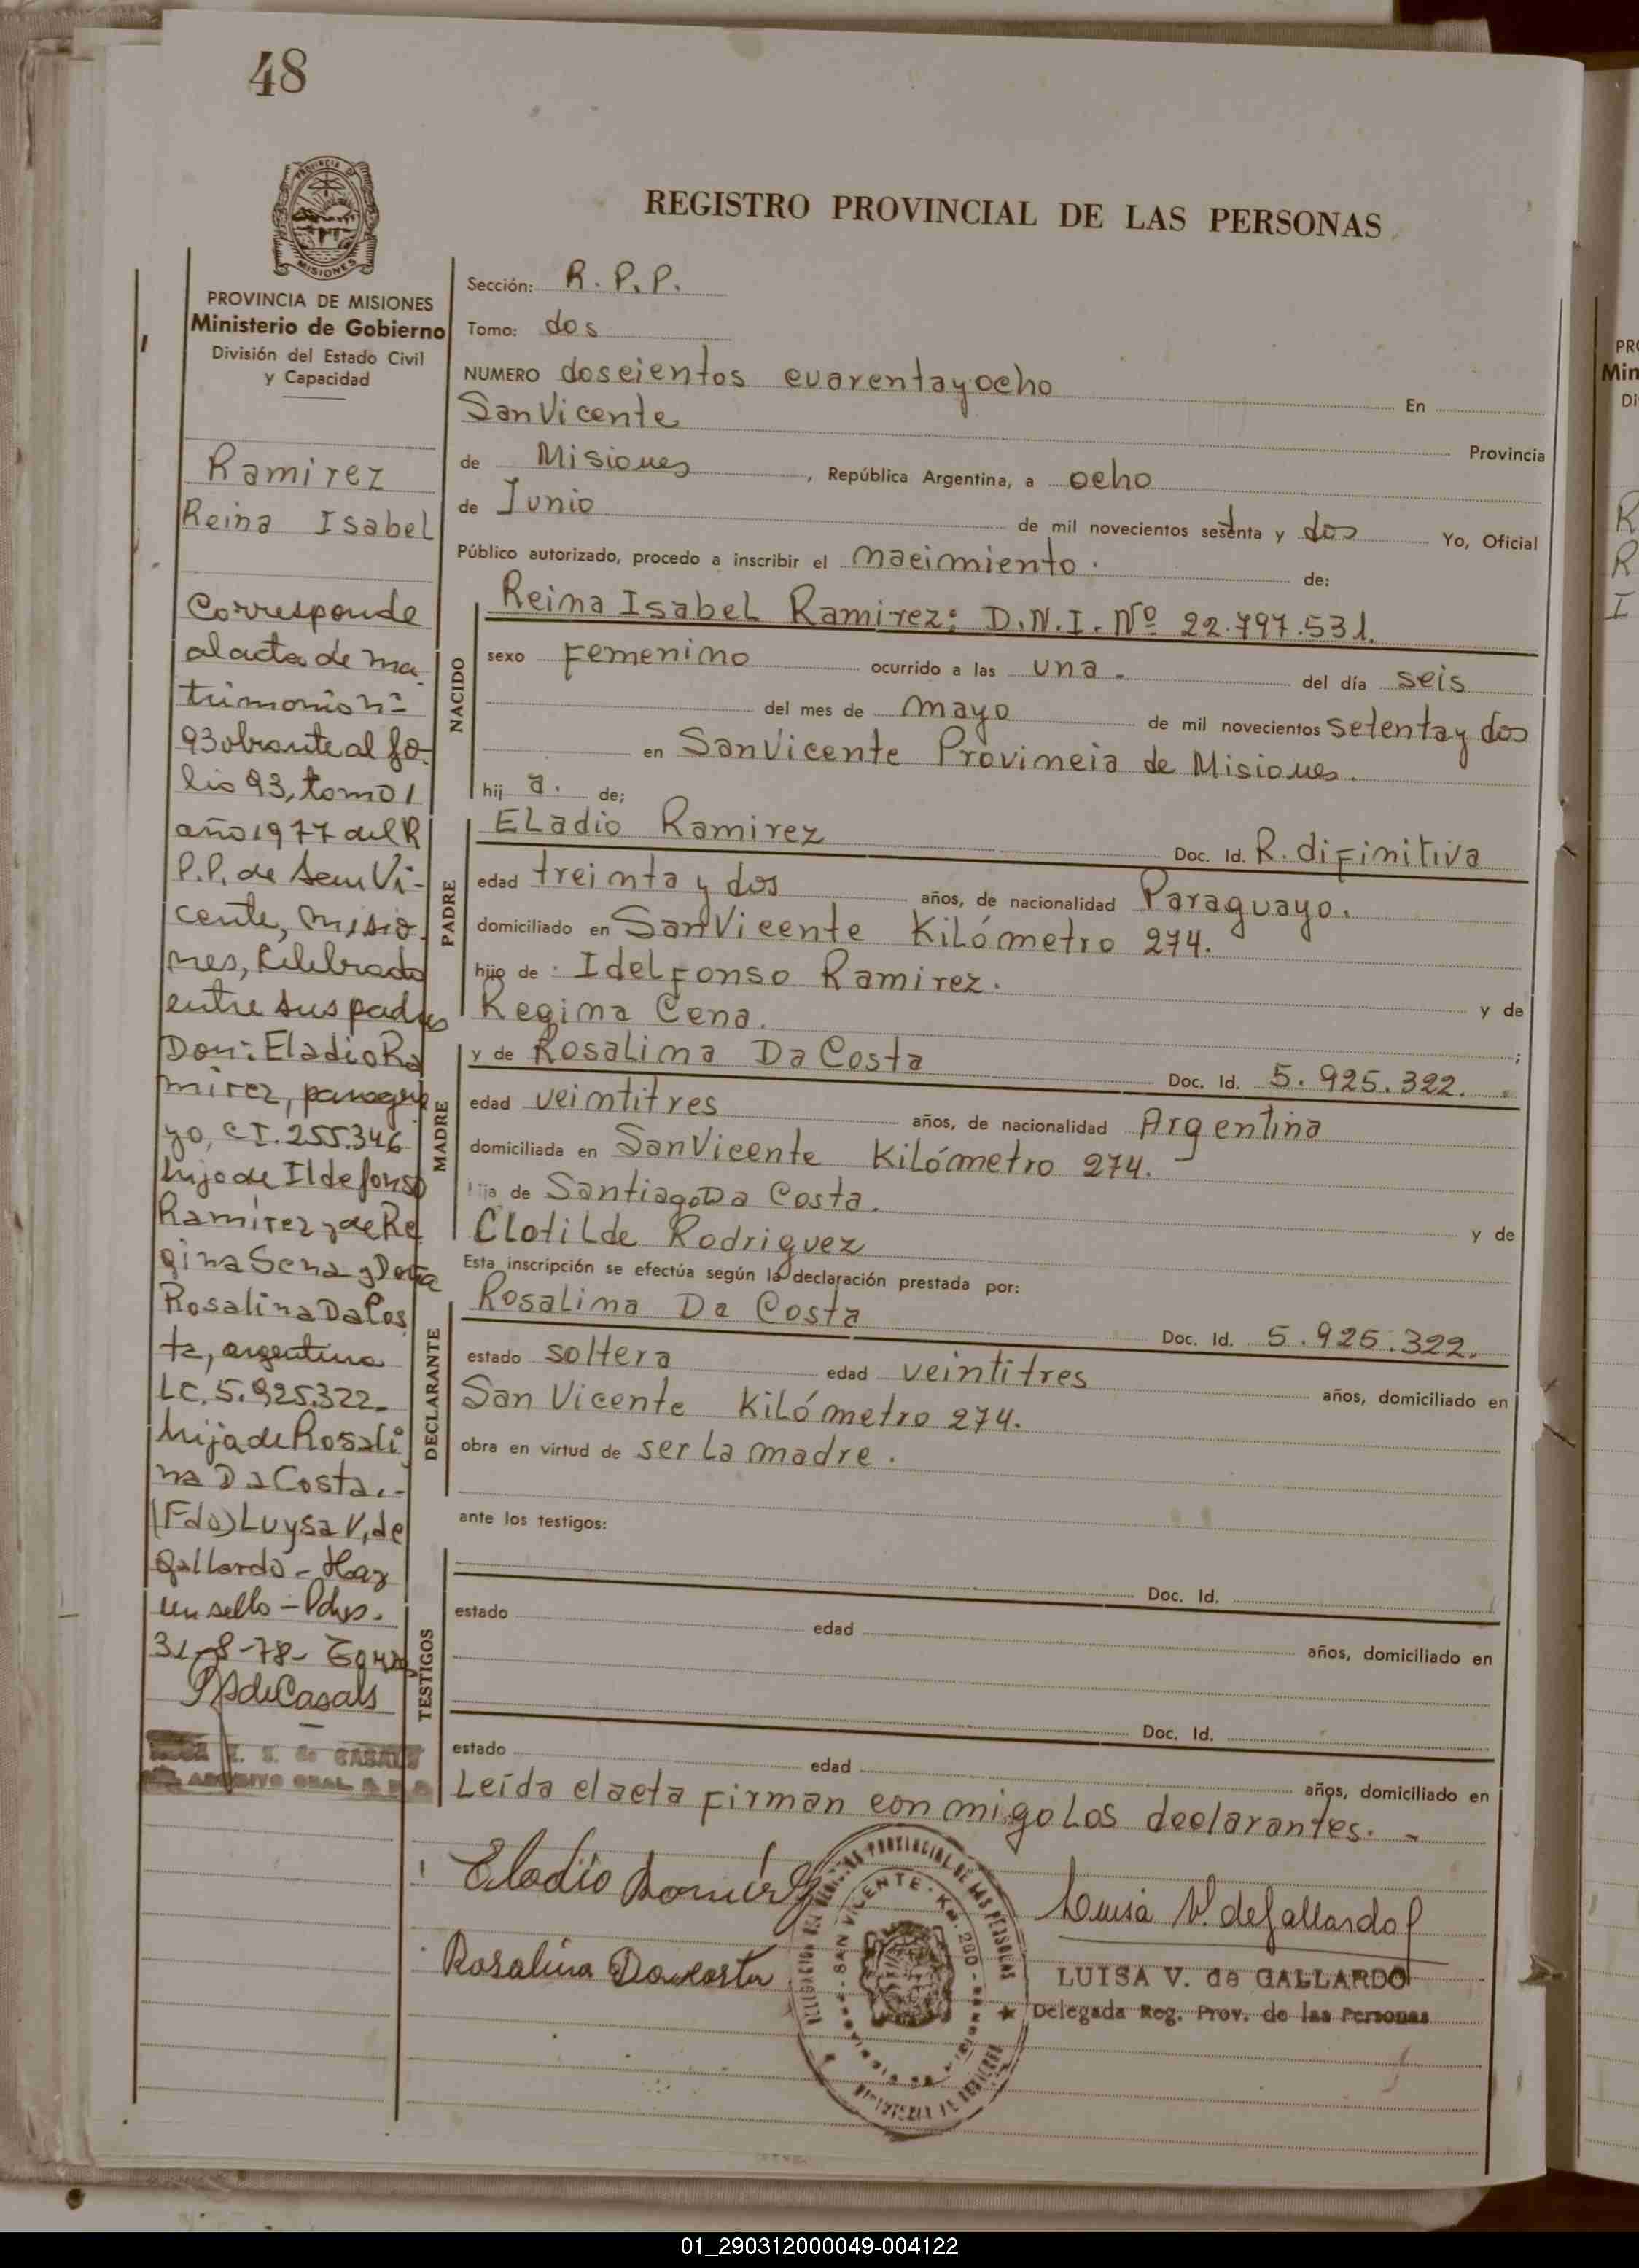 48
PROVINCIA DE
MISIONES
REGISTRO PROVINCIAL DE LAS PERSONAS
PROVINCIA DE MISIONES
Ministerio de Gobierno
División del Estado Civil
y Capacidad
Ramirez
Reina Isabel
Corresponde
al acta de ma-
trimonio nº
93 obrante al fo-
lio 93, tomo 1
año 1977 del R
P.P. de San Vi-
cente, Misio-
nes, celebrado
entre sus padres
Don: Eladio Ra
mirez, paragua
yo, C I. 255.346
hijo de Ildefonso
Ramírez y de Re
gina Sena y Doña
Rosalina Da Cos
ta, argentina
LC. 5.925.322.-
hija de Rosali
na Da Costa.-
(Fdo) Luysa V, de
Gallardo - Hay
un sello - Pdas.
31-8-78-
de Casals
S. de CASALS
ARCHIVO GRAL.
Sección: R. P. P.
Tomo: dos
NUMERO doscientos cuarentayocho En
San Vicente Provincia
de Misiones, República Argentina, a ocho
de Junio de mil novecientos setenta y dos Yo, Oficial
Público autorizado, procedo a inscribir el nacimiento. de:
NACIDO
Reina Isabel Ramirez; D.N.I. Nº 22.797.531.
sexo Femenino ocurrido a las una. del día seis
del mes de mayo de mil novecientos setenta y dos
en San Vicente Provincia de Misiones.
hij a. de;
PADRE
Eladio Ramirez Doc. Id. R. difinitiva
edad treinta y dos años, de nacionalidad Paraguayo.
domiciliado en San Vicente Kilómetro 274.
hijo de Idelfonso Ramirez.
Regina Cena. y de
MADRE
y de Rosalina Da Costa ; Doc. Id. 5.925.322.
edad veintitres años, de nacionalidad Argentina
domiciliada en San Vicente Kilómetro 274.
hija de Santiago Da Costa.
Clotilde Rodriguez y de
Esta inscripción se efectúa según la declaración prestada por:
DECLARANTE
Rosalina Da Costa Doc. Id. 5.925.322.
estado soltera edad veintitres años, domiciliado en
San Vicente Kilómetro 274.
obra en virtud de ser La madre.
ante los testigos:
TESTIGOS
Doc. Id.
estado edad años, domiciliado en
Doc. Id.
estado edad años, domiciliado en
Leída el acta Firman conmigo Los declarantes. -
Eladio Ramírez
Luisa V. de Gallardo
Rosalina Da costa
PROVINCIAL DE LAS PERSONAS
SAN VICENTE - Km. 260 -
LUISA V. de GALLARDO
Delegada Reg. Prov. de las Personas
PRO
Min
Di
R
R
I
01_290312000049-004122